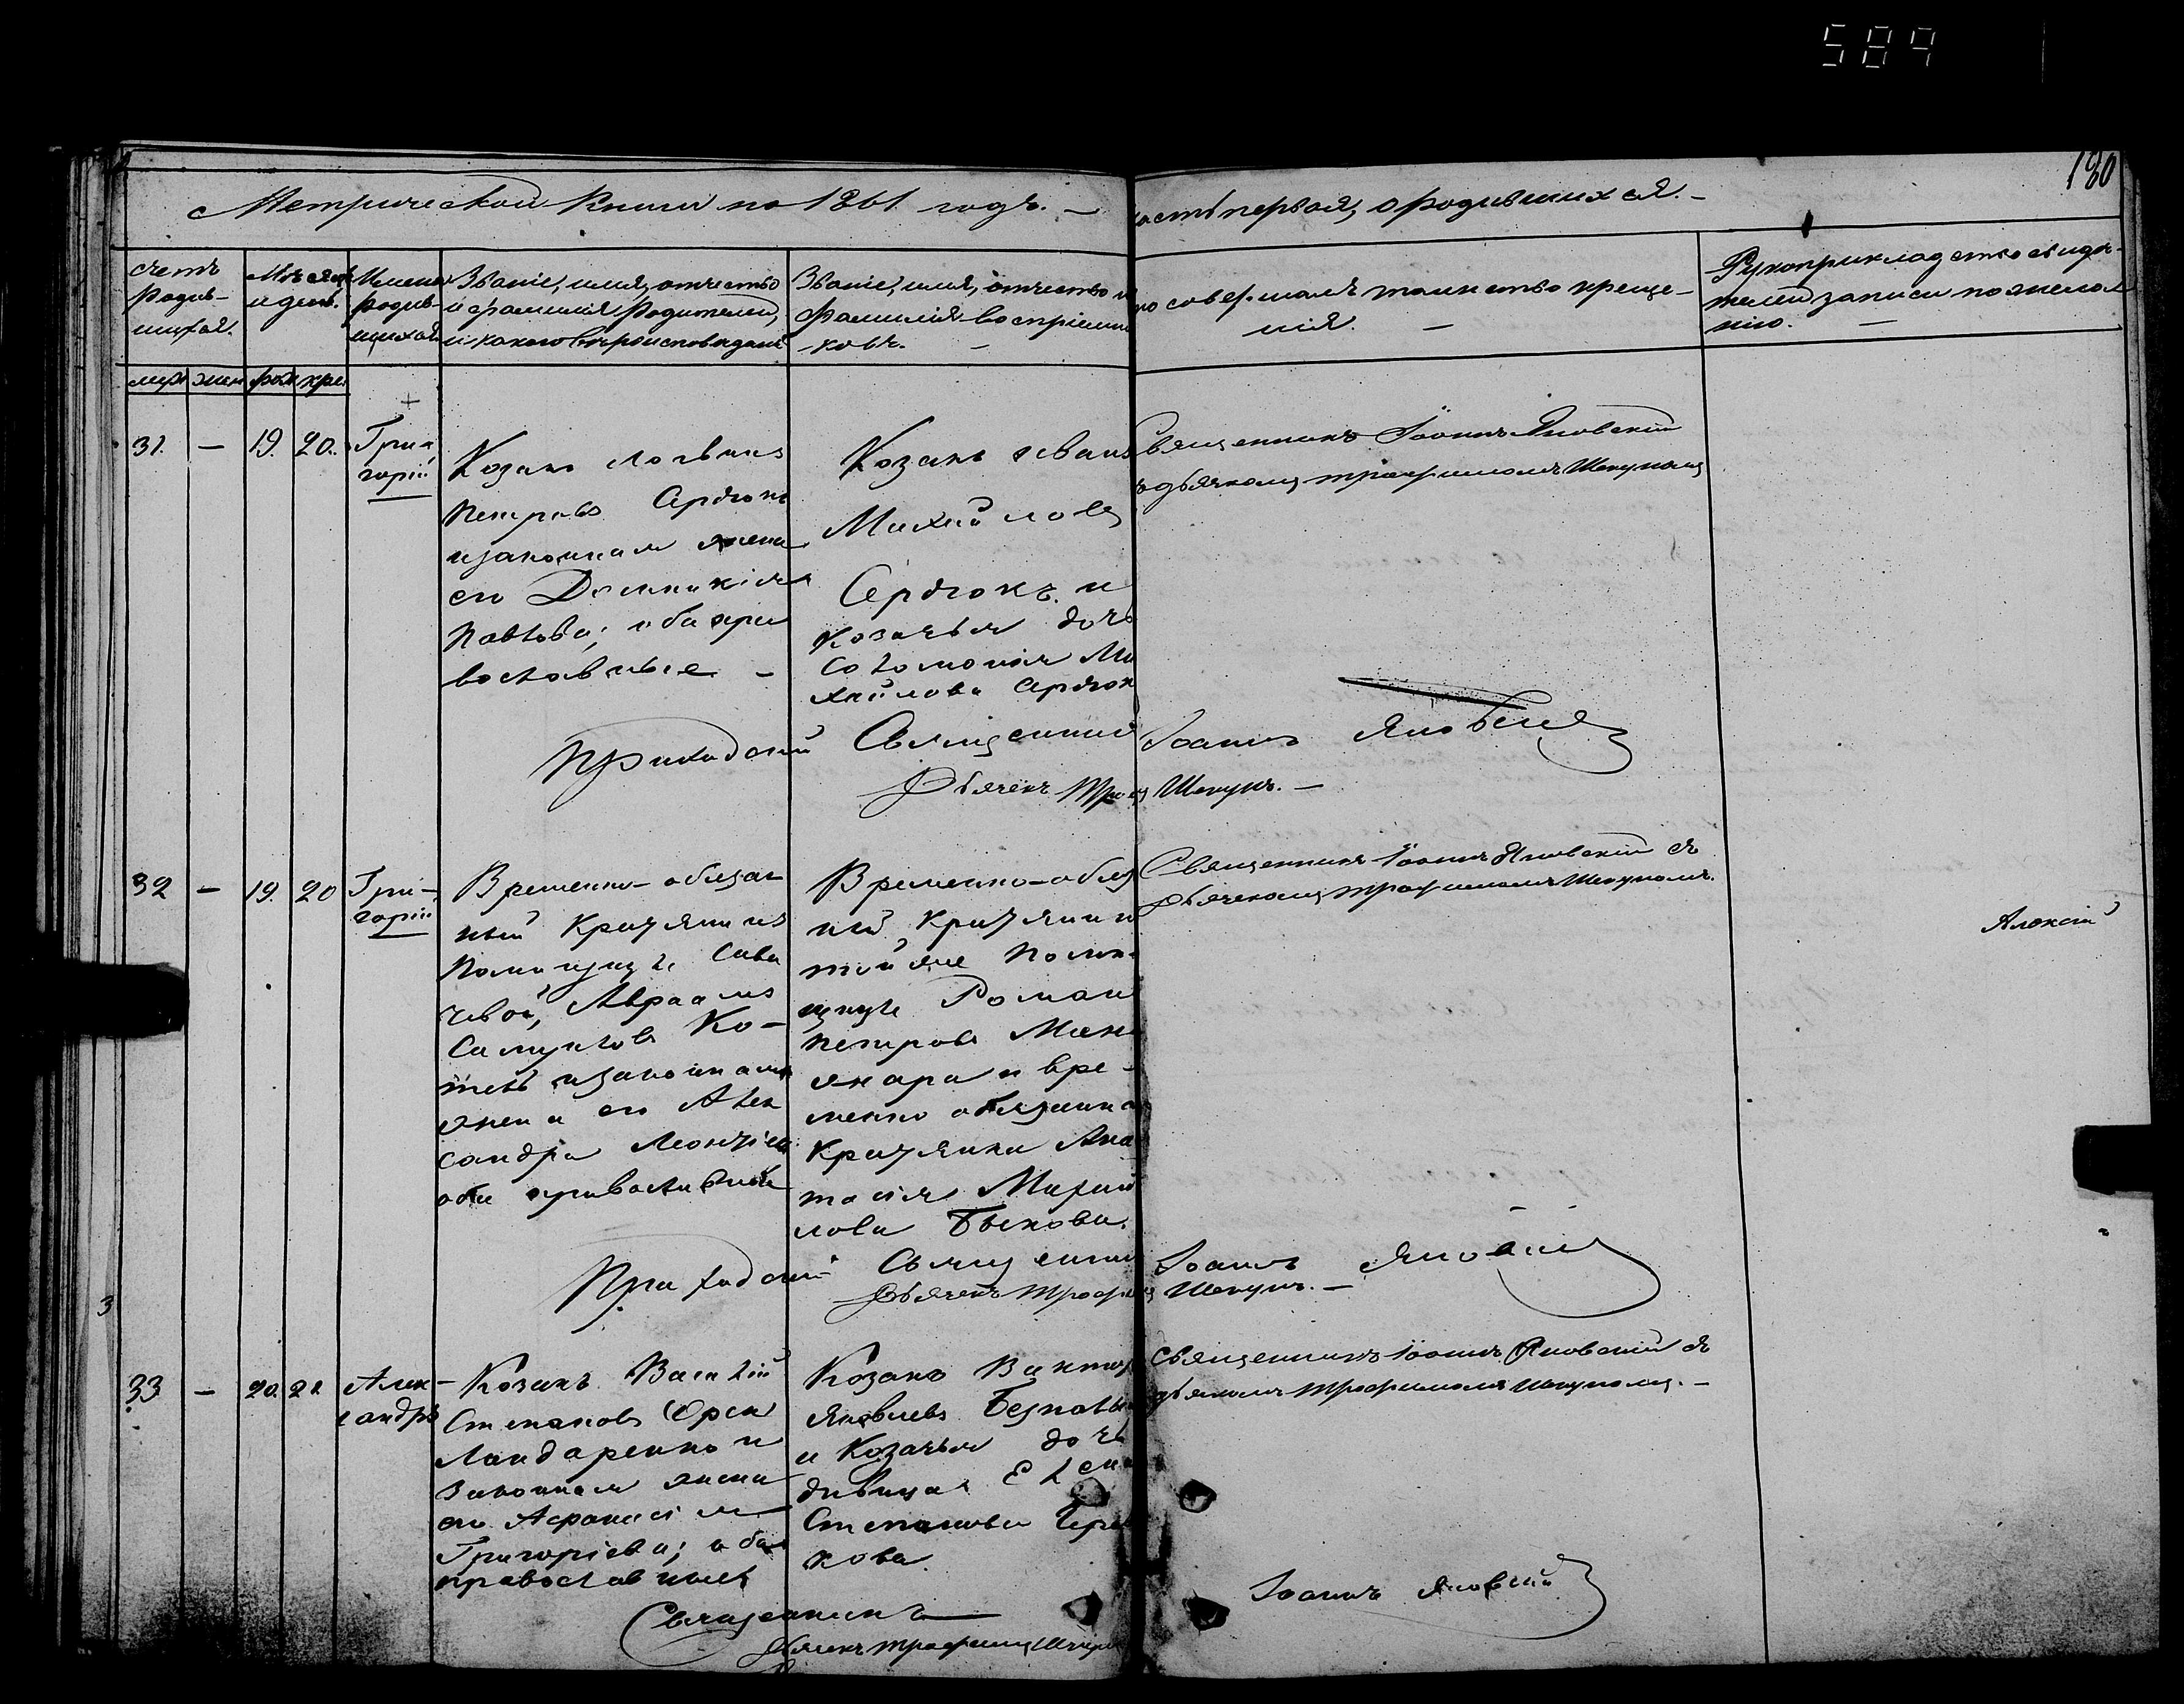 589
180
Метрической книги на 1861 годъ. — часть первая, о родившихся. —
Счетъ родив-
шихся.
Мѣсяцъ
и день.
Имена
родив-
шихся
Званіе, имя, отчество
и фамилія родителей,
и какого вѣроисповѣданія
Званіе, имя, отчество и
фамилія воспріемни
-ковъ. —
кто совершалъ таинство креще-
нія. —
Рукоприкладство свидѣ-
телей записи по желa
нію. —
муж жен рож кре
31. — 19. 20.
Гри-
горій
Козакъ Логвинъ
Петровъ Сердюкъ
и законная жена
его Домникія
Павлова; оба пра
вославные —
Козакъ Иванъ
Михайловъ
Сердюкъ и
козачья дочь
Соломонія Ми
хайлова Сердюк
Священникъ Іоаннъ Яновскій
съ дьячкомъ Трофимомъ
Приходскій Священник Іоаннъ Яновскій
Дьячекъ
32 — 19. 20
Гри-
горій
Временно-обязан
ный крестьянинъ
Помещицы Сави
чевой, Авраамъ
Самуиловъ Ко-
тъ и законная
жена его Алек
сандра Леонтіева
оба православные
Временно-обяз
ный крестьянин
той же поме-
щицы Роман
Петровъ
и вре-
менно обязанна
крестьянка Ана
тасія Михай
лова Быкова.
Священникъ Іоаннъ Яновскій съ
дьячкомъ Трофимомъ
Алексій
Приходскій Священник Іоаннъ Яновскій
Дьячекъ Трофим
3
33 — 20. 21
Алек-
сандръ
Козакъ Василій
Степановъ
Ландаренко и
законная жена
его Афанасія
Григоріева; оба
православные
Козакъ Виктор
Яковлевъ
и козачья дочь
дѣвица Елена
Степанова
кова
Священникъ Іоаннъ Яновскій съ
дьячкомъ Трофимомъ
Священникъ Іоаннъ Яновскій
Дьячекъ Трофимъ